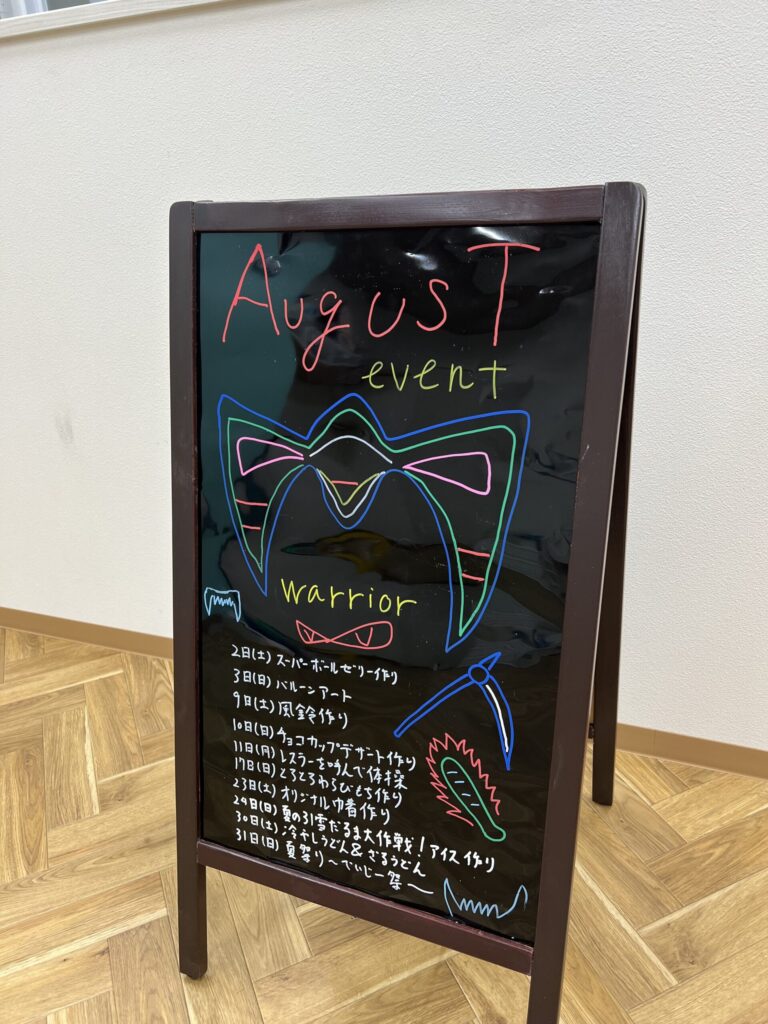 August
event
warrior
2日(土) スーパーボールゼリー作り
3日(日) バルーンアート
9日(土) 風鈴作り
10日(日) チョコカップデザート作り
11日(月) レスラーを呼んで体操
17日(日) とろとろわらびもち作り
23日(土) オリジナル巾着作り
24日(日) 夏の引雪だるま大作戦!アイス作り
30日(土) 冷やしうどん&ざるうどん
31日(日) 夏祭り〜でいじー祭〜